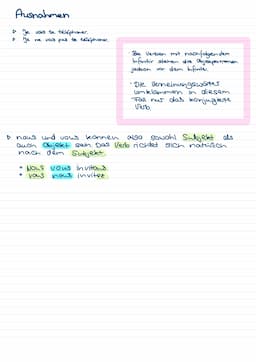 Ausnahmen
Je vais te téléphoner.
Je ne vais pas te téléphoner.
Bei Verben mit nachfolgendem
Infinitiv stehen die
jedoch vor dem Infinitiv.
• Die Verneinungswörter
umklammern in diesem
Fall nur das konjugierte
Verb.
nous und vous können also sowohl Subjekt als
auch Objekt sein. Das Verb richtet sich natürlich
nach dem Subjekt.
• Nous vous invitons.
• Vous nous invitez.